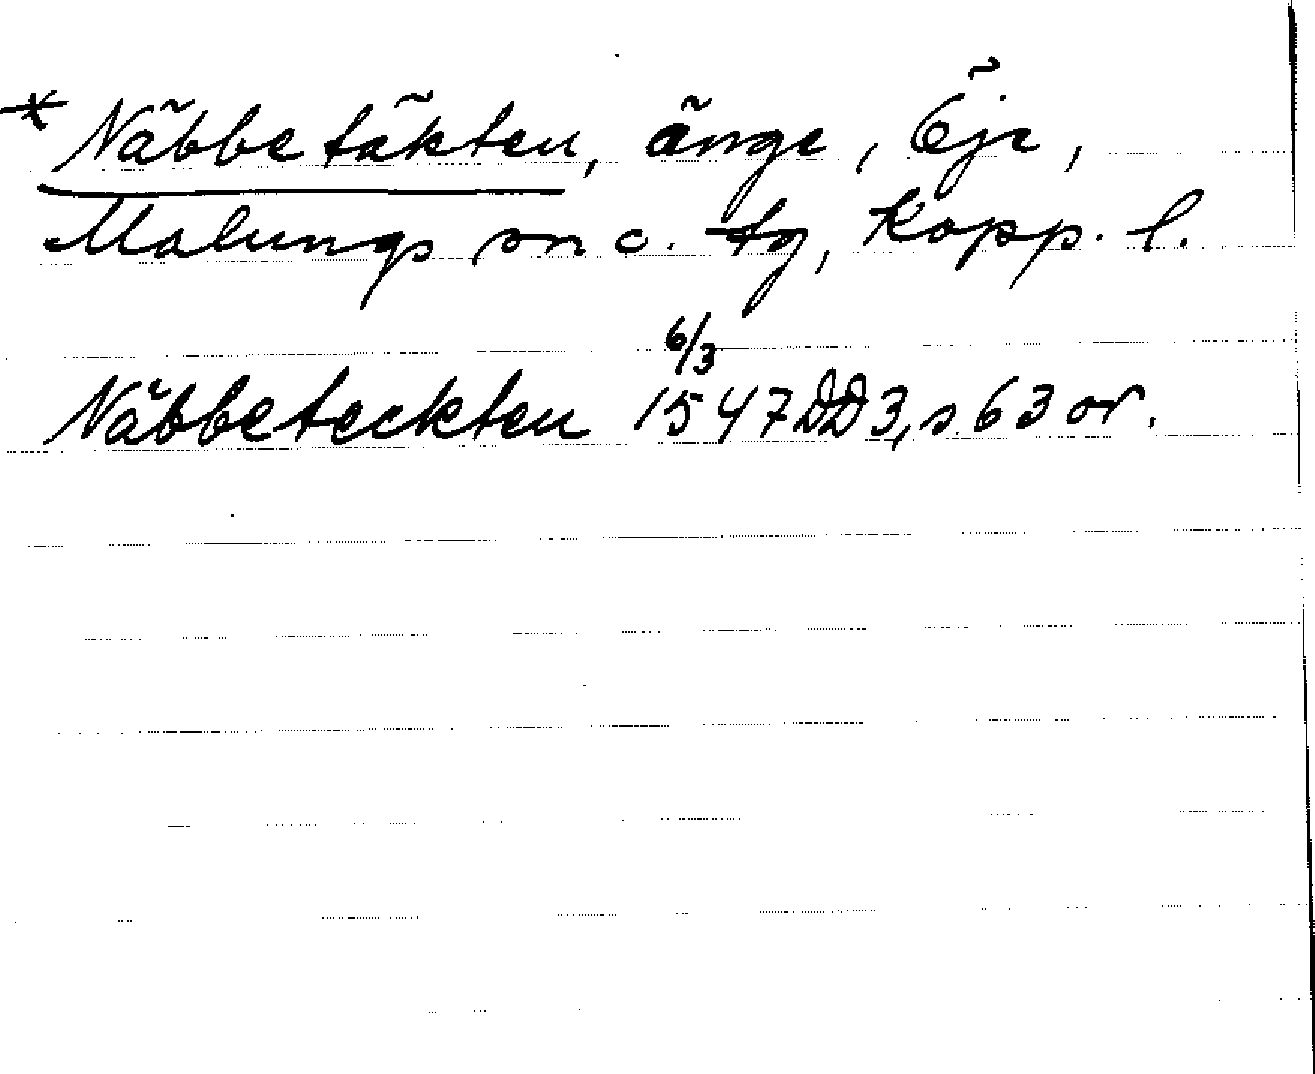 * Näbbetäkten, änge, Öje,
Malungs sn o. tg, Kopp. l.
6/3
Näbbeteckten 1547 DD 3, s. 63 or.